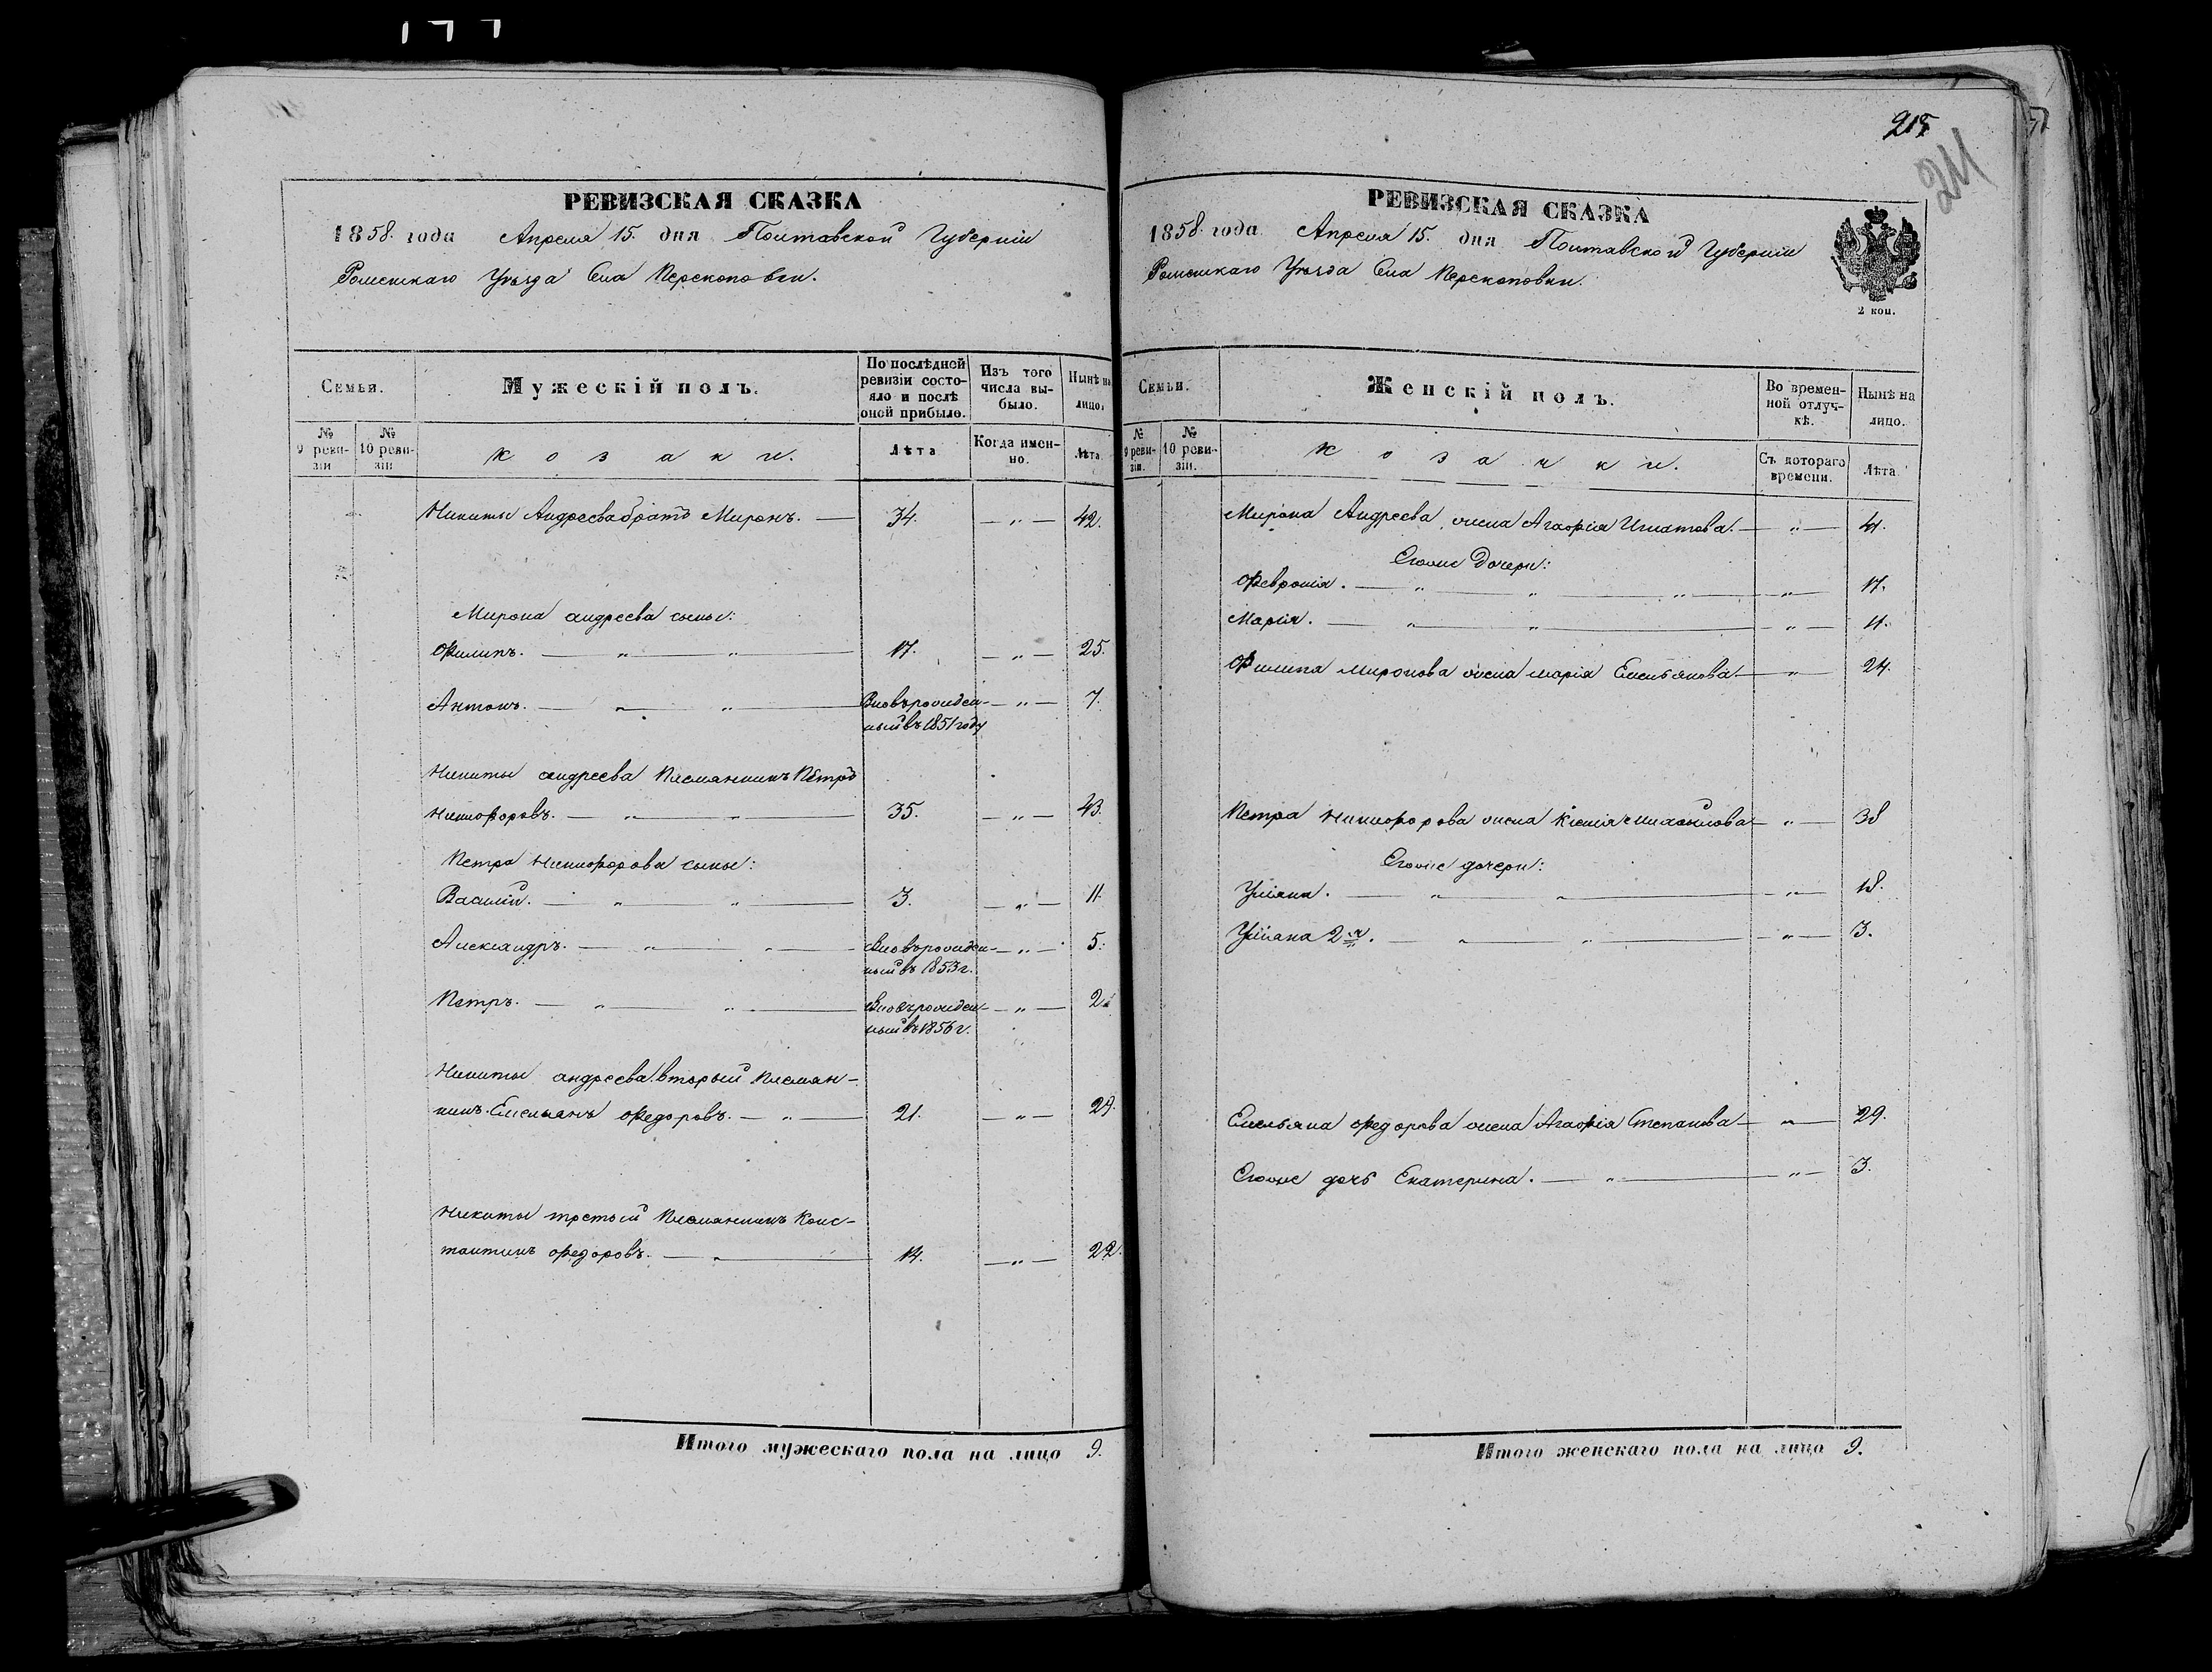 215
211
РЕВИЗСКАЯ СКАЗКА
1858. года Апреля 15. дня Полтавской Губерніи
Роменскаго Уѣзда Села Перекоповки.
Семьи.
Мужескій полъ.
По послѣдней ревизіи состояло и послѣ оной прибыло.
Изъ того числа выбыло.
Нынѣ на лицо.
№ 9 ревизіи
№ 10 ревизіи
козаки.
Лѣта
Когда именно.
Лѣта
Никиты Андреева братъ Миронъ. — 34. — „ — 42.
Мирона андреева сыны:
Филипъ. — „ — „ — 17. — „ — 25.
Антонъ. — „ — „ — Вновърожден- — „ — 7.
ныйвъ 1851 году
Никиты андреева племянникъ Петръ
Никифоровъ. — „ — „ — 35. — „ — 43.
Петра Никифорова сыны:
Василій. — „ — „ — 3. — „ — 11.
Александръ. — „ — „ — Вновърожден- — „ — 5.
ныйвъ 1853 г.
Петръ. — „ — „ — Вновърожден- — „ — 2.
ныйвъ 1856 г.
Никиты андреева вторый племян-
никъ Емельянъ федоровъ. — „ — 21. — „ — 29.
Никиты третый племянникъ Конс-
тантинъ федоровъ. — „ — 14. — „ — 22.
Итого мужескаго пола на лицо 9.
РЕВИЗСКАЯ СКАЗКА
1858. года Апреля 15. дня Полтавской Губерніи
Роменскаго Уѣзда Села Перекоповки.
2 коп.
Семьи.
Женскій полъ.
Во временной отлучкѣ.
Нынѣ на лицо.
№ 9 ревизіи.
№ 10 ревизіи.
козачки.
Съ котораго времени.
Лѣта.
Мирона Андреева жена Агафія Игнатова. — „ — 41.
Егоже Дочери:
Февронія. — „ — „ — „ — „ — 17.
Марія. — „ — „ — „ — 11.
Филипа миронова жена марія Емельянова — „ — 24.
Петра Никифорова жена Ксенія михайлова — „ — 38
Егоже дочери:
Уліяна. — „ — „ — „ — 18.
Уліяна 2я. — „ — „ — „ — 3.
Емельяна федорова жена Агафія Степанова — „ — 29.
Егоже дочь Екатерина. — „ — „ — 3.
Итого женскаго пола на лицо 9.